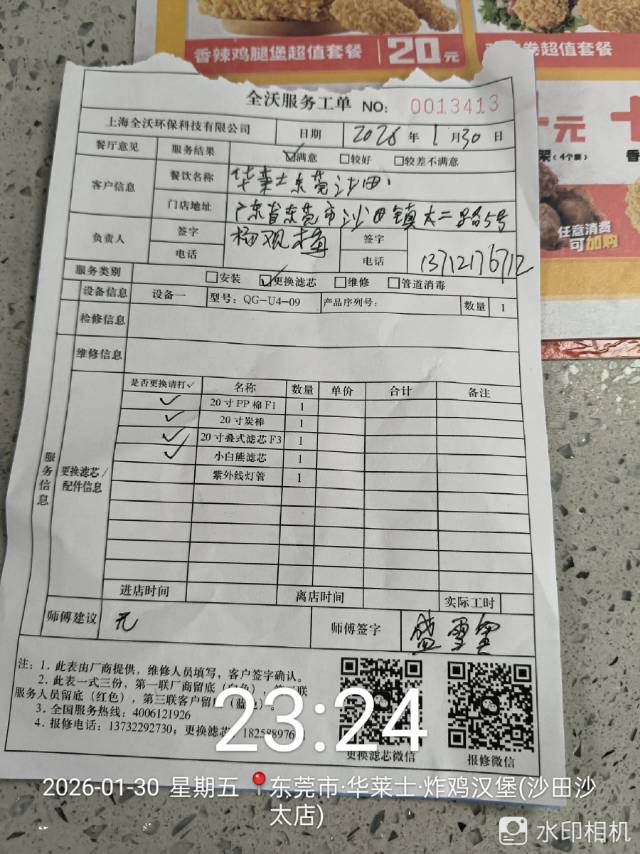 香辣鸡腿堡超值套餐 20元
卷超值套餐
元
架(4个翅)
任意消费
可加购
全沃服务工单 NO: 0013413
上海全沃环保科技有限公司 日期 2026年1月30日
餐厅意见 服务结果 ☑满意 □较好 □较差不满意
客户信息 餐饮名称 华莱士东莞沙田
门店地址 广东省东莞市沙田镇大二路5号
负责人 签字 签字
电话 电话 13712176712
服务类别 □安装 ☑更换滤芯 □维修 □管道消毒
设备信息 设备一 型号: QG-U4-09 产品序列号: 数量 1
检修信息
维修信息
服务信息
更换滤芯/配件信息
是否更换请打✓ 名称 数量 单价 合计 备注
✓ 20寸PP棉F1 1
✓ 20寸炭棒 1
✓ 20寸叠式滤芯F3 1
✓ 小白熊滤芯 1
紫外线灯管 1
进店时间 离店时间 实际工时
师傅建议 无 师傅签字
注: 1. 此表由厂商提供, 维修人员填写, 客户签字确认。
2. 此表一式三份, 第一联厂商留底
服务人员留底(红色), 第三联客户留
3. 全国服务热线: 4006121926
4. 报修电话: 13732292730; 更换滤芯
更换滤芯微信
报修微信
23:24
2026-01-30 星期五 东莞市·华莱士·炸鸡汉堡(沙田沙
太店)
水印相机